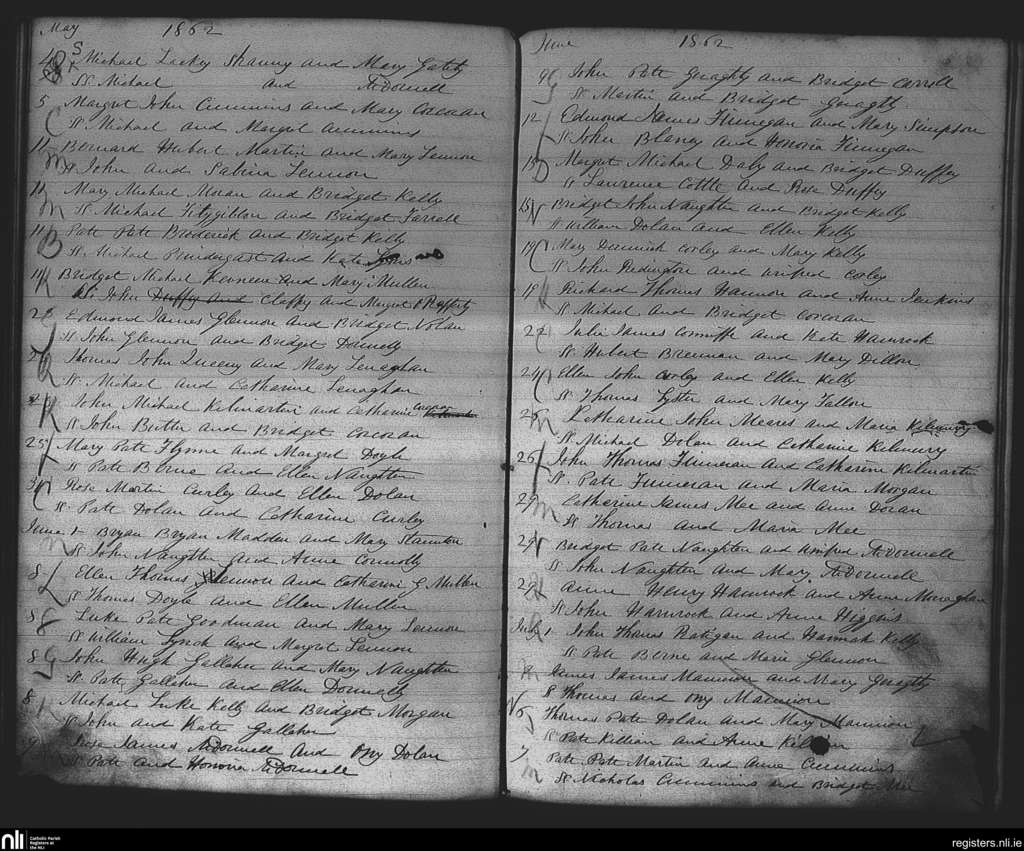 May 1862
4 S Michael Lackey Shanny and Mary Gately
SS. Michael and McDonnell
5 Margret John Cummins and Mary Corcoran
C SS Michael and Margret Cummins
11 Bernard Hubert Martin and Mary Lennon
M SS John and Sabina Lennon
11 Mary Michael Moran and Bridget Kelly
M SS Michael Fitzgibbon and Bridget Farrell
11 Patt Patt Broderick and Bridget Kelly
B SS. Michael Prindergast and Kate
K Bridget Michael Keroene and Mary Mullen
SS John Duffy and Claffy and Margret Rafferty
Edmond James Glennon and Bridget Nolan
SS John Glennon and Bridget Donnelly
Thomas John Queeny and Mary Lenaghan
SS. Michael and Catharine Lenaghan
John Michael Kilmartin and Catharine
K SS John Butter and Bridget Corcoran
25 Mary Pate Flynne and Margret Doyle
SS Pate Berne and Ellen Naughten
Rose Martin Curley and Ellen Dolan
C SS. Pate Dolan and Catharine Curley
June 1 Bryan Bryan Madden and Mary Staunton
M SS John Naughten and Anne Connolly
8 Ellen Thomas Glennon and Catharine G Mullen
SS Thomas Doyle and Ellen Mullen
8 Luke Pate Goodman and Mary Lennon
G SS William Lynch and Margret Lennon
8 John Hugh Gallaher and Mary Naughten
G SS. Pate Gallaher and Ellen Donnelly
8 Michael Luke Kelly and Bridget Morgan
SS John and Kate Gallaher
Rose James McDonnell and Bny Dolan
SS Pate and Honora McDonnell
June 1862
9 G John Patt Geraghty and Bridget Carroll
SS Martin and Bridget Geragth
12 Edmond James Finnegan and Mary Simpson
SS John Blaney and Honoria Finnegan
15 Margret Michael Daly and Bridget Duffy
D SS Laurence Cottle and Rose Duffy
15 N Bridget John Naughten and Bridget Kelly
SS William Dolan and Ellen Kelly
19 Mary Dominick Corley and Mary Kelly
C SS John Redington and Winifred Corley
19 Richard Thomas Hannon and Anne Jenkins
H SS Michael and Bridget Corcoran
22 Julie James Conniffe and Kate Hamrock
C SS. Hubert Brennan and Mary Dillon
24 C Ellen John Corley and Ellen Kelly
SS Thomas Lyster and Mary Fallon
25 M Catharine John Meares and Maria Kilmurry
SS. Michael Dolan and Catharine Kilmurry
26 John Thomas Finneran and Catharine Kilmartin
F SS. Pate Finneran and Maria Morgan
29 Catharine James Mee and Anne Doran
M SS Thomas and Maria Mee
29 N Bridget Patt Naughten and Winifred McDonnell
SS John Naughten and Mary McDonnell
29 H Anne Henry Hamrock and Anne Monaghan
SS John Hamrock and Anne Higgins
July 1 John Thomas Ratigan and Hannah Kelly
R SS Pate Berne and Maria Glennon
M James James Mannion and Mary Geraghty
S Thomas and Bny Mannion
6 Thomas Pate Dolan and Mary Mannion
SS Pate Killian and Anne Killian
7 Patt Patt Martin and Anne Cummins
M SS Nicholas Cummins and Bridget Mee
nli Catholic Parish Registers at the NLI
registers.nli.ie